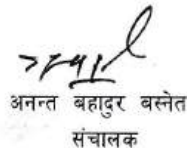 अनन्त बहादुर बस्नेत
संचालक